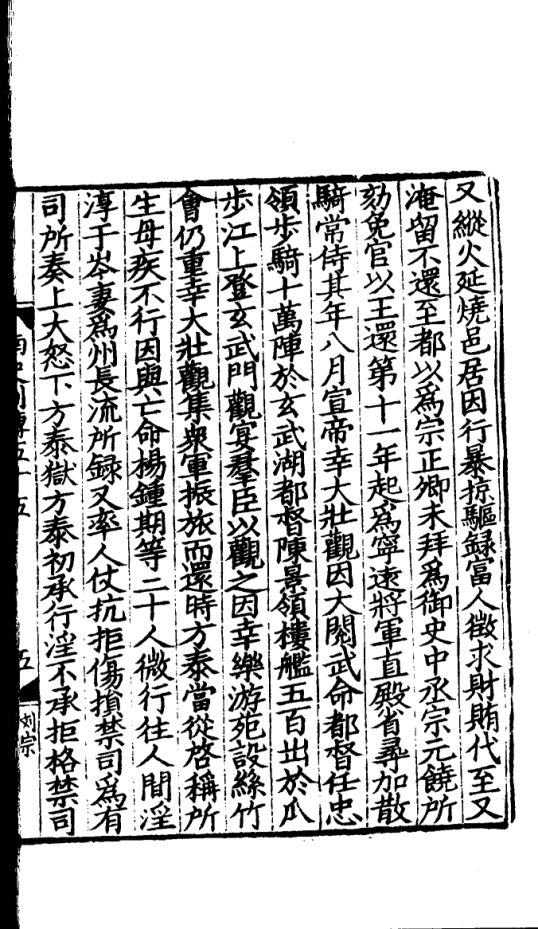 又縱火延燒邑居因行暴掠驅録富人徵求財賄代至又
淹留不還至都以爲宗正卿未拜爲御史中丞宗元饒所
劾免官以王還第十一年起爲寧逺將軍直殿省尋加散
騎常侍其年八月宣帝幸大壯觀因大閱武命都督任忠
領步騎十萬陣於玄武湖都督陳景領樓艦五百出於瓜
步江上登玄武門觀宴羣臣以觀之因幸樂游苑設絲竹
會仍重幸大壯觀集衆軍振旅而還時方泰當從啓稱所
生母疾不行因與亡命楊鍾期等二十人微行往人間淫
淳于岑妻爲州長流所録又率人仗抗拒傷損禁司爲有
司所奏上大怒下方泰獄方泰初承行淫不承拒格禁司
南史列傳五十五
五
刘宗